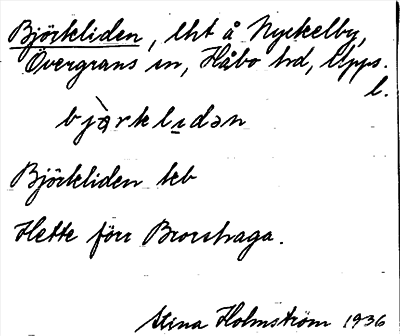 Björkliden, lht å Nyckelby,
Övergrans sn, Håbo hd, Upps.
l.
bjò̤rklıdən
Björkliden kb
Hette förr Brorshaga.
Stina Holmström 1936